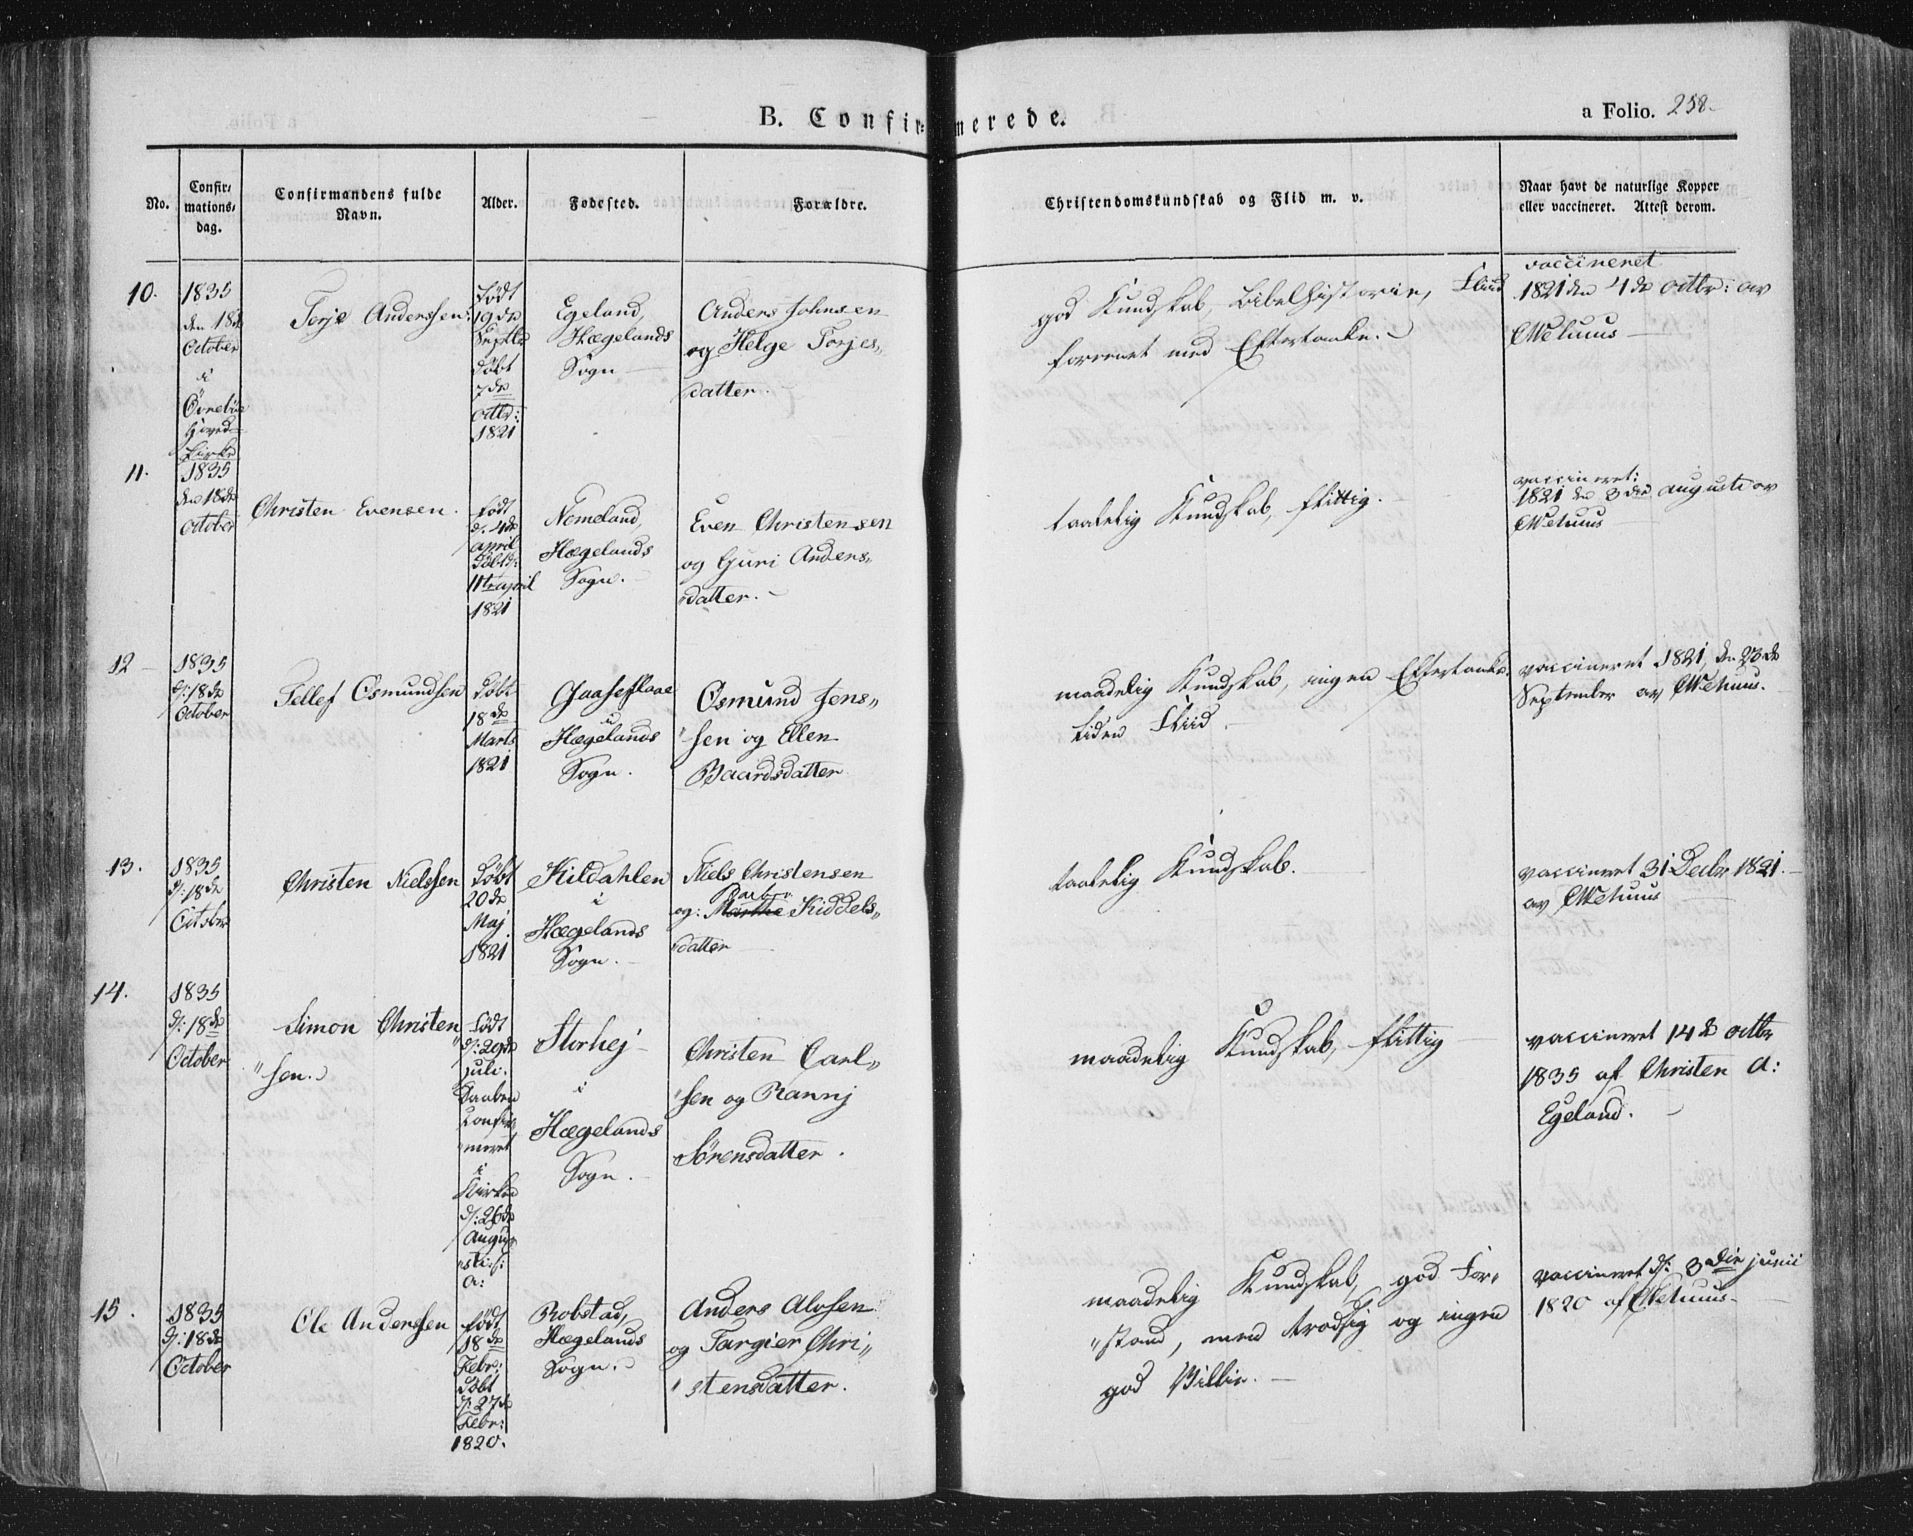 B. Confir-merede.
a Folio. 258.
No.
Confir-
mations-
dag.
Confirmandens fulde
Navn.
Alder.
Fødested.
Forældre.
Christendomskundskab og Flid m. v.
Naar havt de naturlige Kopper
eller vaccineret. Attest derom.
10.
1835
den 18de
October
i
Øvrebøe
Hoved-
kirke
Terje Anderssen.
født
19de
Septbr
døbt
7de
octbr:
1821
Egeland,
Hægelands
Sogn
Anders Johnsen
og Helge Torjes„
datter.
god Kundskab, Bibelhistorie, Fliid
forenet med Eftertanke.
vaccineret
1821 den 4de octbr: av
11.
1835
den 18de
october
Christen Evensen.
født
d. 4de
april
døbt d:
11te april
1821
Nomeland,
Hægelands
Sogn.
Even Christensen
og Guri Anders„
„datter.
taalelig Kundskab, flittig.
vaccineret:
1821 den 3die augusti av
12
1835
d: 18de
October
Tellef Osmundsen
døbt
18de
Marts
1821
Gaaseflaae
i
Hægelands
Sogn.
Osmund Jens„
„sen og Ellen
Baardsdatter
maadelig Kundskab, ingen Eftertanke
liden Fliid.
vaccineret 1821, den 23de
September av
13.
1835
d: 18de
October
Christen Nielssen
døbt
20de
Maj
1821
Kildahlen
i
Hægelands
Sogn.
Niels Christensen
Barbro
og: Marthe Kiddels„
datter
taalelig Kundskab.
vaccineret 31 Decbr 1821.
av
14.
1835
d: 18de
October
Simon Christen„
„sen.
født
d: 29de
juli.
Daaben
confir„
„meret
i
Kirken
d: 26de
Augu„
„sti s:
a:
Storhej
i
Hægelands
Sogn.
Christen Carl„
„sen og Rannj
Sørensdatter.
maadelig Kundskab, flittig
vaccineret 14de octbr
1835 af Christen A:
Egeland.
15.
1835
d: 18de
October
Ole Anderssen
født
18de
Febr:
døbt
d: 27de
Febr:
1820.
Robstad,
Hægelands
Sogn.
Anders Alvsen
og Targier Chri„
„stensdatter.
maadelig Kundskab, god For„
„stand, men trodsig og ingen
god Villie.
vaccineret d: 3die junii
1820 af